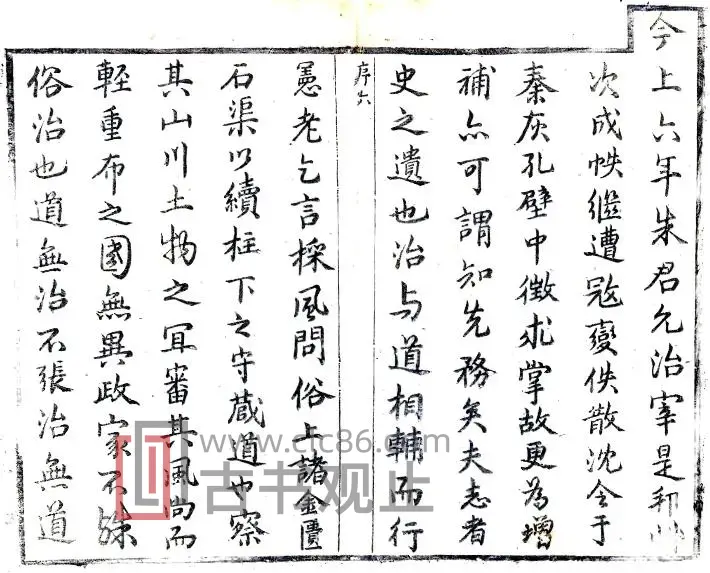 今上六年朱君允治宰是邦
次成帙繼遭冦變佚散沈令于
秦灰孔壁中徵求掌故更為增
補亦可謂知先務矣夫志者
史之遺也治与道相輔而行
序六
憲老乞言採風問俗上諸金匱
石渠以續柱下之守蔵道也察
其山川土物之冝審其風尚而
輕重布之國無異政家不殊
俗治也道無治不張治無道
www.cic86.com
古书观止